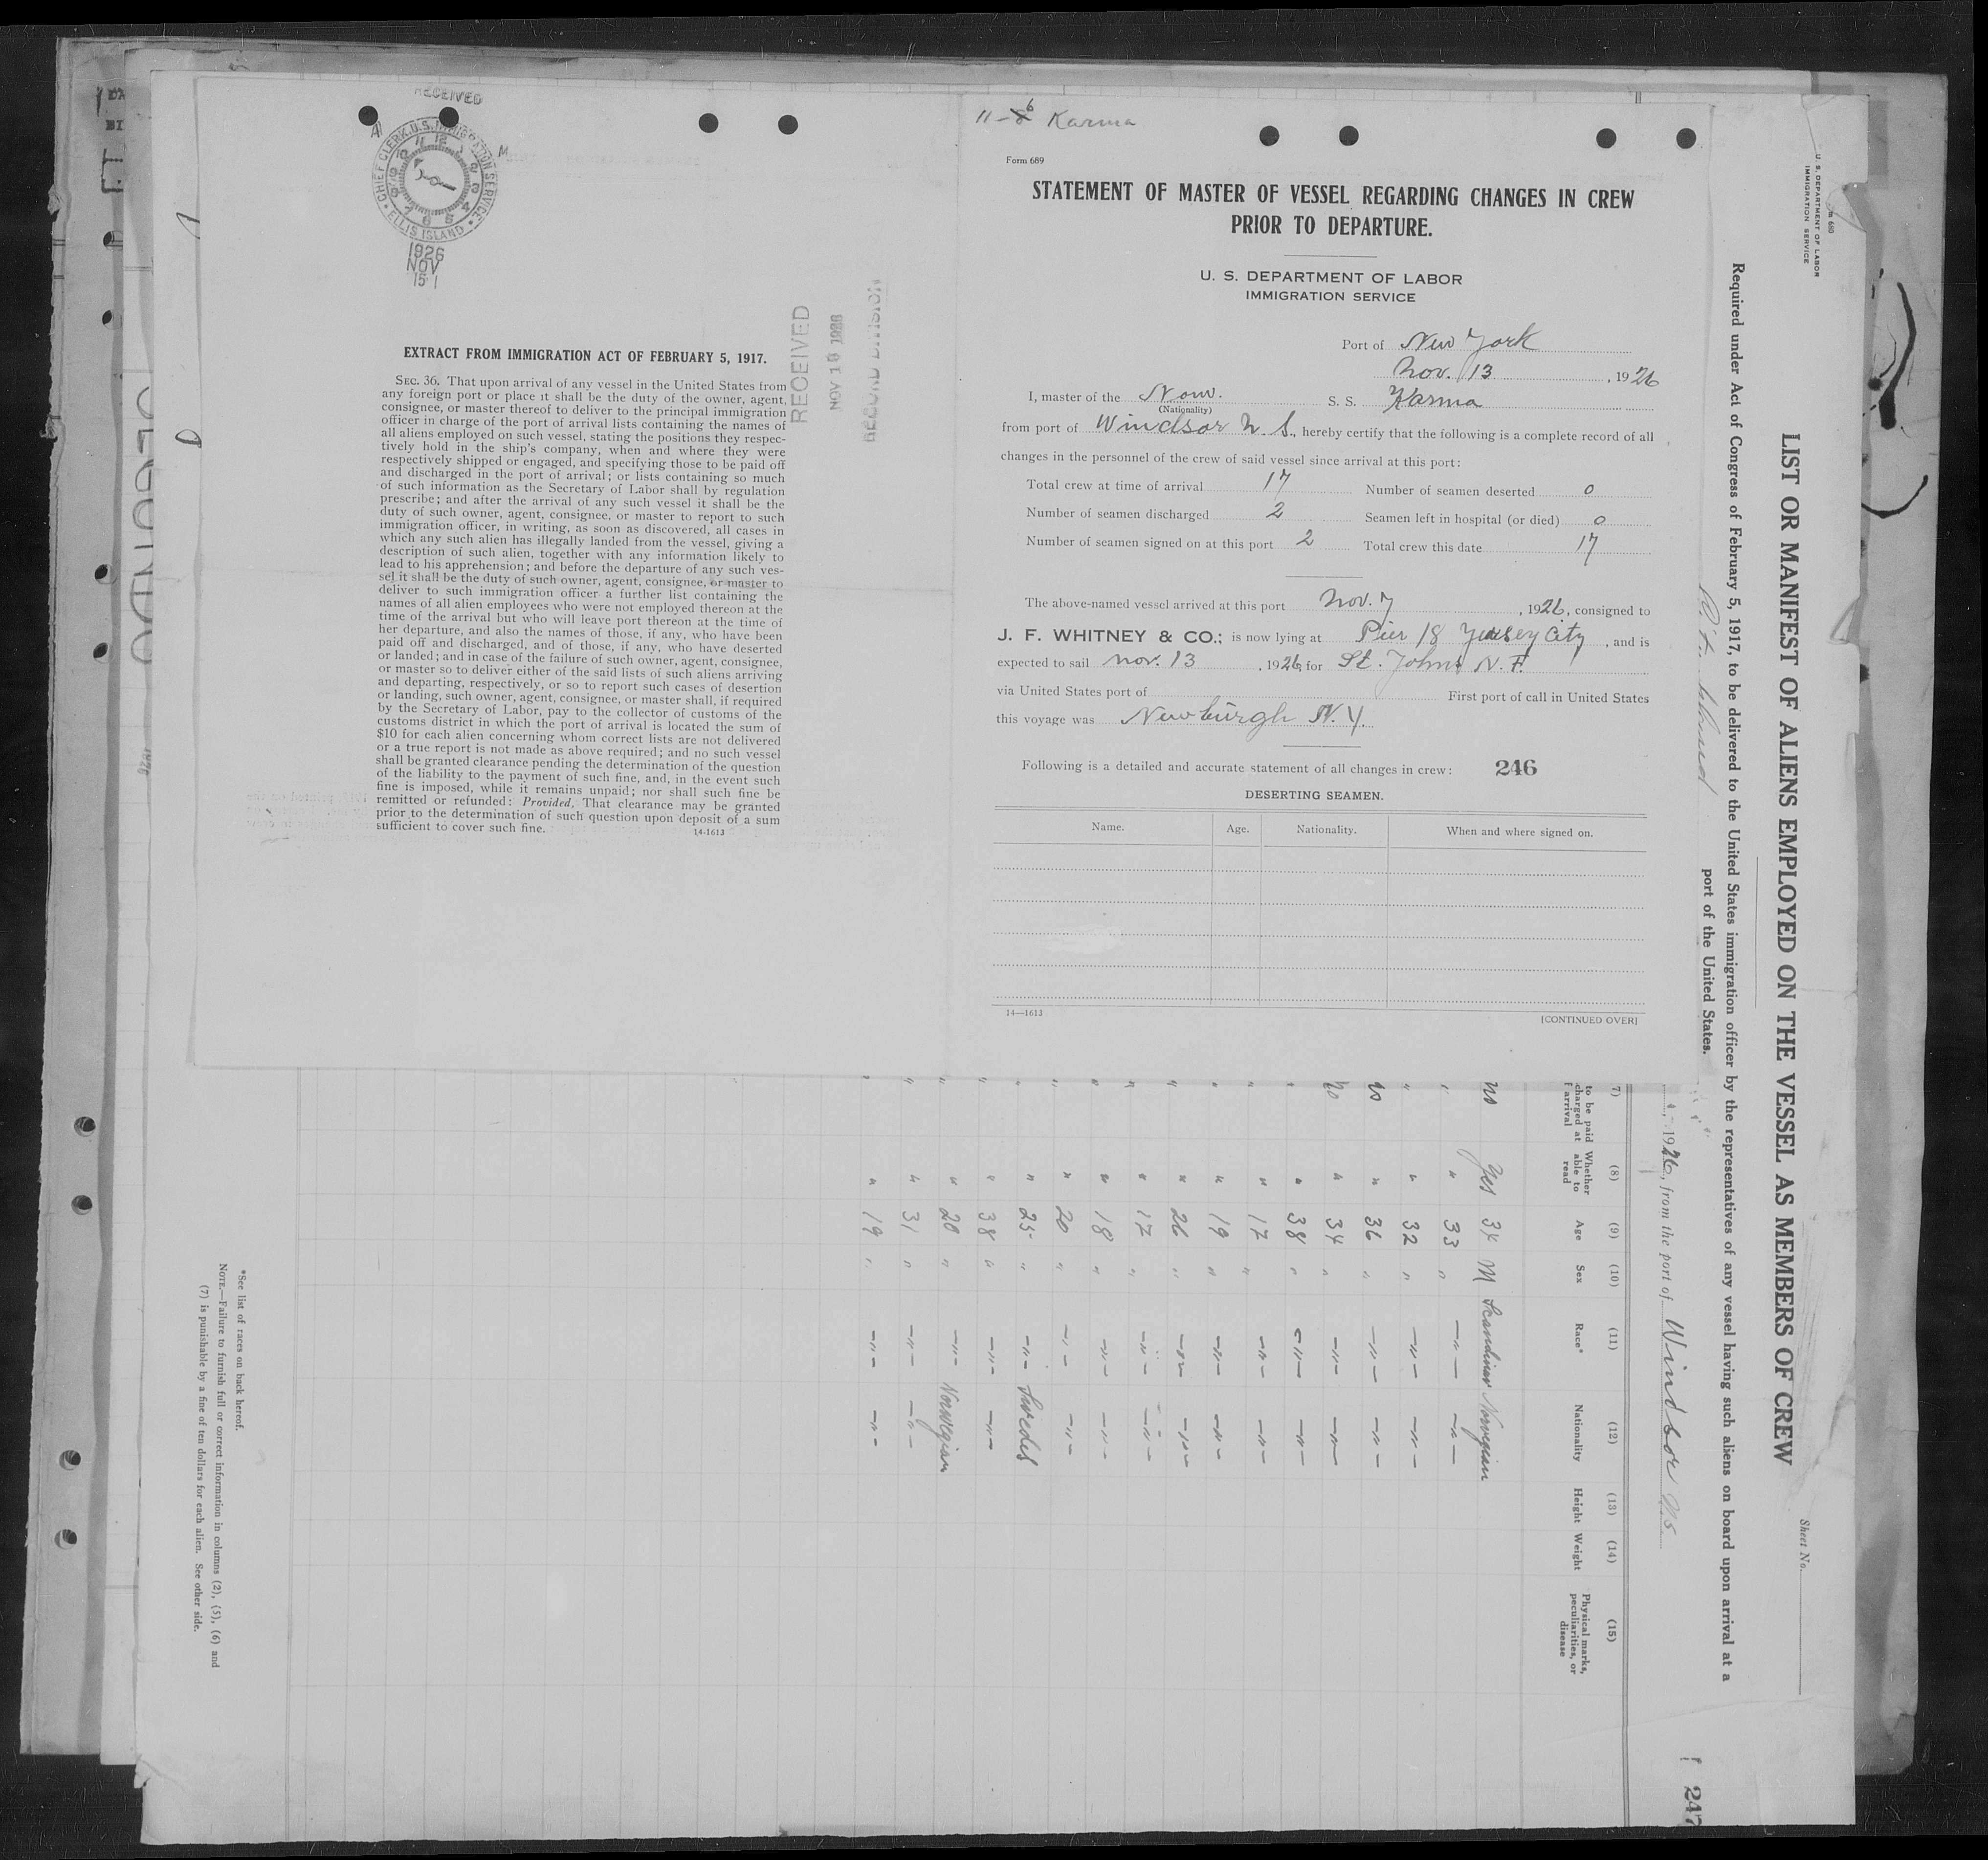 RECEIVED
CHIEF CLERK, U.S. IMMIGRATION SERVICE
ELLIS ISLAND
1926
NOV
15
EXTRACT FROM IMMIGRATION ACT OF FEBRUARY 5, 1917.
SEC. 36. That upon arrival of any vessel in the United States from
any foreign port or place it shall be the duty of the owner, agent,
consignee, or master thereof to deliver to the principal immigration
officer in charge of the port of arrival lists containing the names of
all aliens employed on such vessel, stating the positions they respec-
tively hold in the ship's company, when and where they were
respectively shipped or engaged, and specifying those to be paid off
and discharged in the port of arrival; or lists containing so much
of such information as the Secretary of Labor shall by regulation
prescribe; and after the arrival of any such vessel it shall be the
duty of such owner, agent, consignee, or master to report to such
immigration officer, in writing, as soon as discovered, all cases in
which any such alien has illegally landed from the vessel, giving a
description of such alien, together with any information likely to
lead to his apprehension; and before the departure of any such ves-
sel it shall be the duty of such owner, agent, consignee, or master to
deliver to such immigration officer a further list containing the
names of all alien employees who were not employed thereon at the
time of the arrival but who will leave port thereon at the time of
her departure, and also the names of those, if any, who have been
paid off and discharged, and of those, if any, who have deserted
or landed; and in case of the failure of such owner, agent, consignee,
or master so to deliver either of the said lists of such aliens arriving
and departing, respectively, or so to report such cases of desertion
or landing, such owner, agent, consignee, or master shall, if required
by the Secretary of Labor, pay to the collector of customs of the
customs district in which the port of arrival is located the sum of
$10 for each alien concerning whom correct lists are not delivered
or a true report is not made as above required; and no such vessel
shall be granted clearance pending the determination of the question
of the liability to the payment of such fine, and, in the event such
fine is imposed, while it remains unpaid; nor shall such fine be
remitted or refunded: Provided, That clearance may be granted
prior to the determination of such question upon deposit of a sum
sufficient to cover such fine.
14-1613
RECEIVED
RECORD DIVISION
11-6 Karma
Form 689
STATEMENT OF MASTER OF VESSEL REGARDING CHANGES IN CREW
PRIOR TO DEPARTURE.
U. S. DEPARTMENT OF LABOR
IMMIGRATION SERVICE
Port of New York
Nov. 13, 1926
I, master of the Norw. S. S. Karma
(Nationality)
from port of Windsor N. S., hereby certify that the following is a complete record of all
changes in the personnel of the crew of said vessel since arrival at this port:
Total crew at time of arrival 17 Number of seamen deserted 0
Number of seamen discharged 2 Seamen left in hospital (or died) 0
Number of seamen signed on at this port 2 Total crew this date 17
The above-named vessel arrived at this port Nov. 7, 1926, consigned to
J. F. WHITNEY & CO.; is now lying at Pier 18 Jersey City, and is
expected to sail Nov. 13, 1926, for St. Johns N. F.
via United States port of First port of call in United States
this voyage was Newburgh N. Y.
Following is a detailed and accurate statement of all changes in crew: 246
DESERTING SEAMEN.
Name. Age. Nationality. When and where signed on.
14—1613
[CONTINUED OVER]
U. S. DEPARTMENT OF LABOR
IMMIGRATION SERVICE
Sheet No.
LIST OR MANIFEST OF ALIENS EMPLOYED ON THE VESSEL AS MEMBERS OF CREW
Required under Act of Congress of February 5, 1917, to be delivered to the United States immigration officer by the representatives of any vessel having such aliens on board upon arrival at a
port of the United States.
, 1926, from the port of Windsor N.S.
(8) (9) (10) (11) (12) (13) (14) (15)
to be paid
charged at
arrival
Whether
able to
read
Age Sex Race* Nationality Height Weight
Physical marks,
peculiarities, or
disease
no Yes 34 M Scandinav Norwegian
" " 33 " -"- -"-
" " 32 " -"- -"-
no " 36 " -"- -"-
no " 34 " -"- -"-
" " 38 " -"- -"-
" " 17 " -"- -"-
" " 19 " -"- -"-
" " 26 " -"- -"-
" " 17 " -"- -"-
" " 18 " -"- -"-
" " 20 " -"- -"-
" " 25 " -"- Swedes
" " 38 " -"- -"-
" " 20 " -"- Norwegian
" " 31 " -"- -"-
" " 19 " -"- -"-
*See list of races on back hereof.
NOTE.—Failure to furnish full or correct information in columns (2), (5), (6) and
(7) is punishable by a fine of ten dollars for each alien. See other side.
247